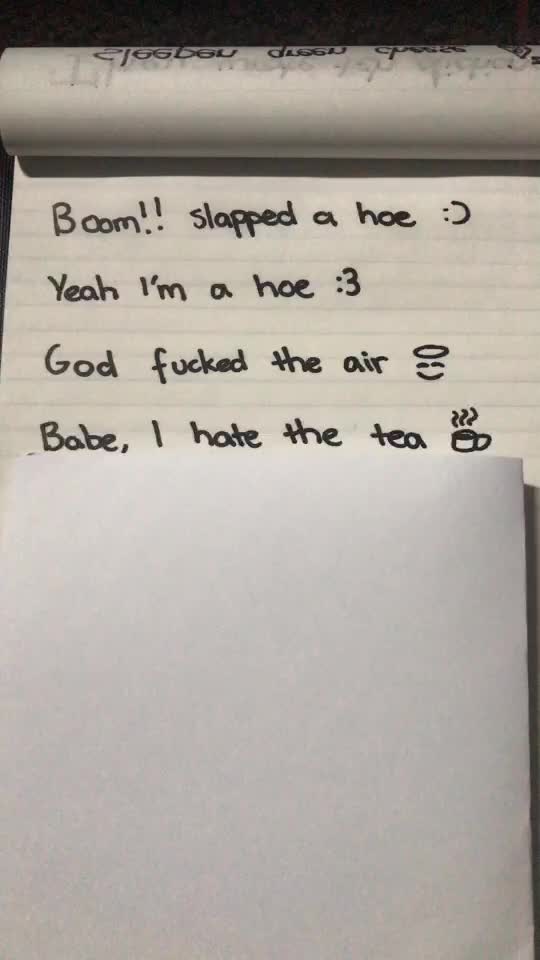 sleeper green cheese
Boom!! slapped a hoe :)
Yeah I'm a hoe :3
God fucked the air
Babe, I hate the tea